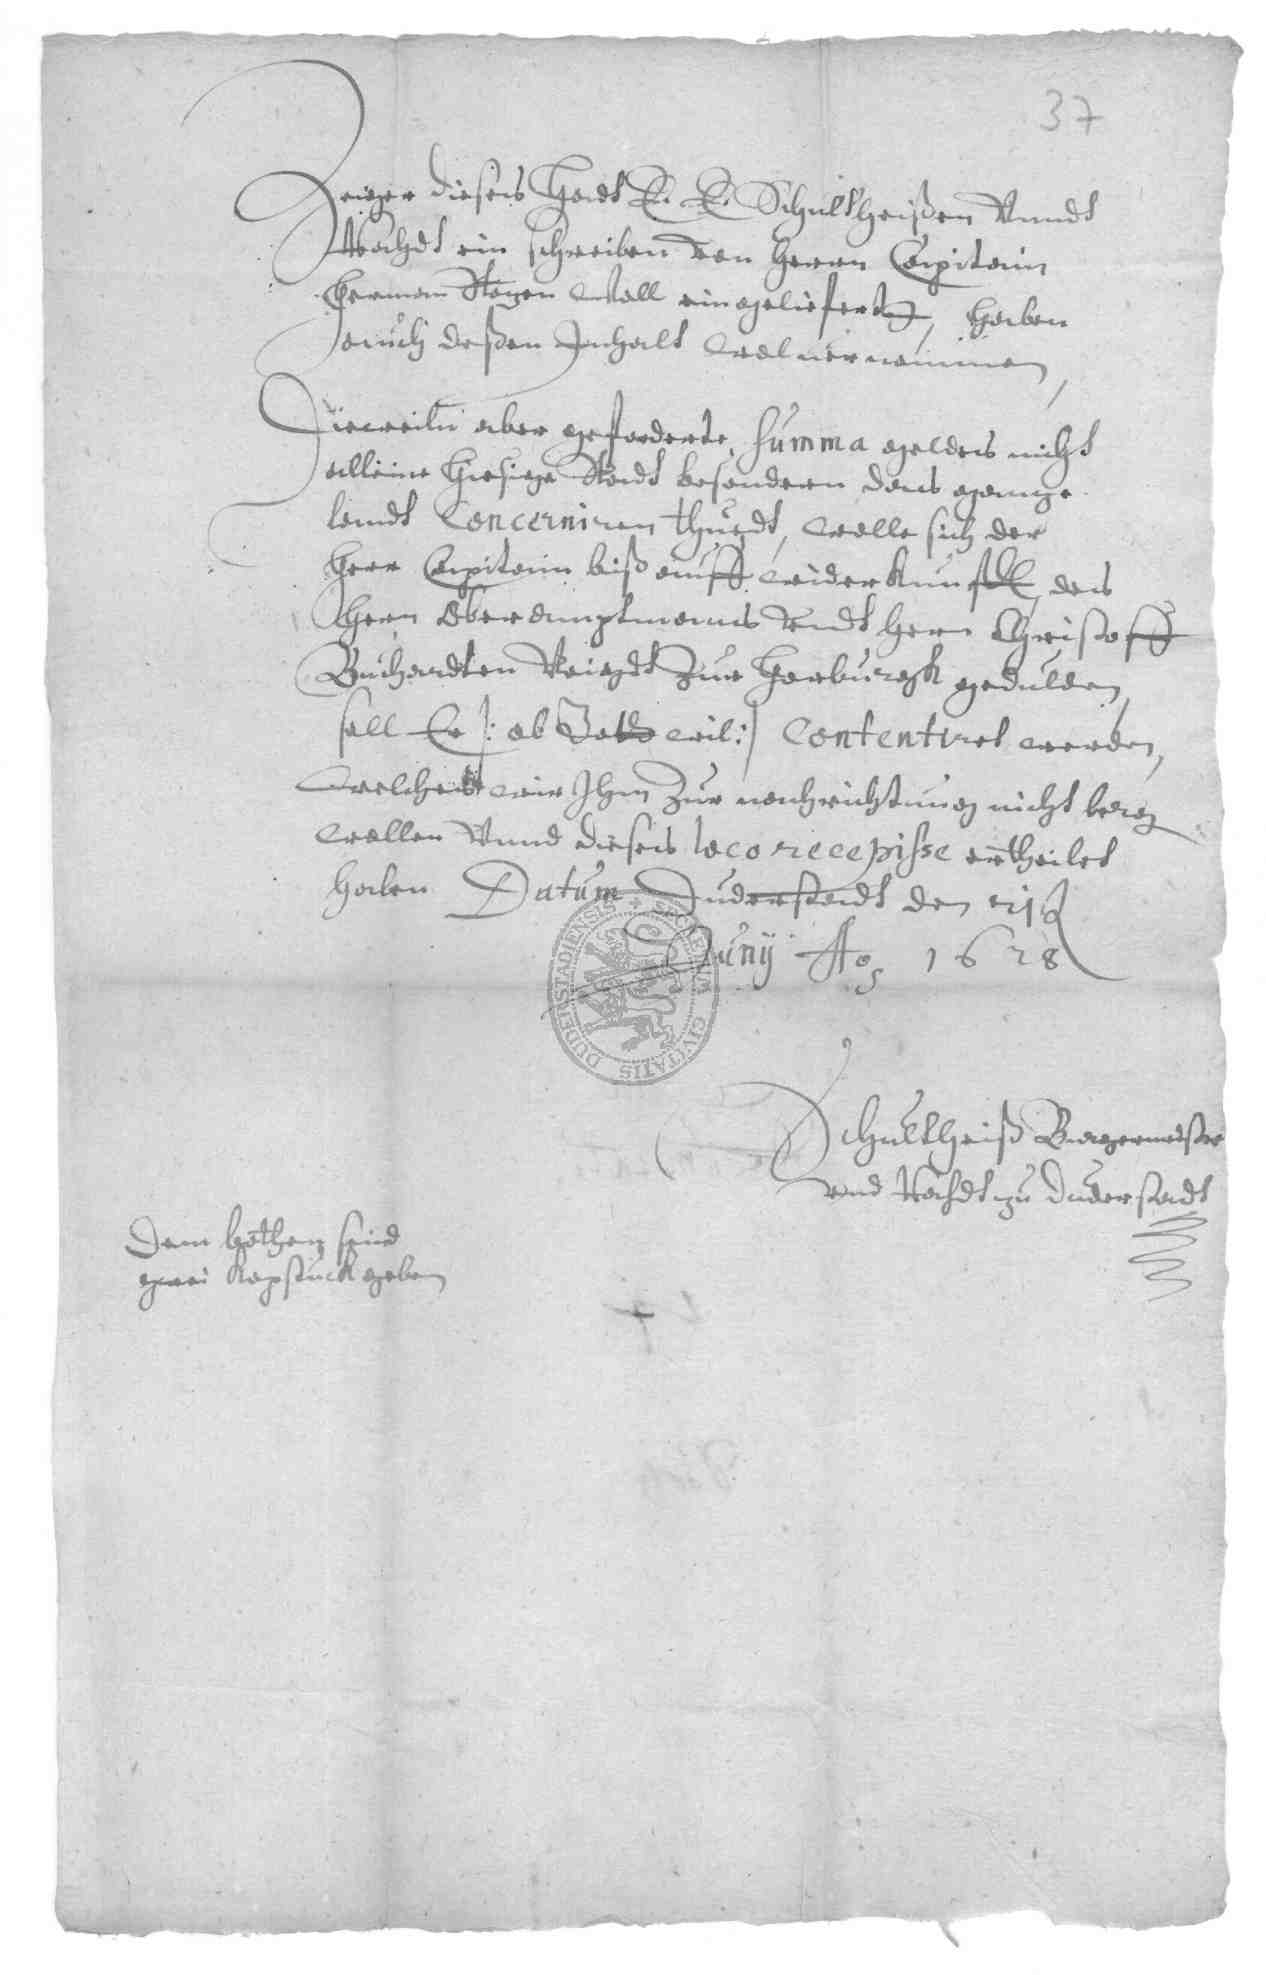 37
Zeiger dieses hadt E. E. Schultheißen Vundt
Rahdt ein schreiben von herrn Capitain
Herman Wall eingeliefert, haben
auch deßen Inhalt woluernommen,
Dieweiln aber geforderte Summa geldes nicht
alleine hiesige Stadt besondern das gantze
landt Concerniren thuedt, wolle sich der
Herr Capitain biß auff widerkunfft, des
Hern Oberamptmans Vndt Hern Christoff
Buchardten Voigdt Zur Harburgk gedulden,
soll Er |: ob Gott wil :| Contentiret werden,
Welches wir Ihm Zur nachrichtung nicht berg
wollen Vnnd dieses loco recepisse ertheilet
haben Datum Duderstadt den
Junÿ Ao 1628
SECRETUM CIVITATIS DUDERSTADIENSIS
Schultheiß Burgermeister
vnd Rahdt zu Duderstadt
Dem bothen seind
zwei kopstuck geben